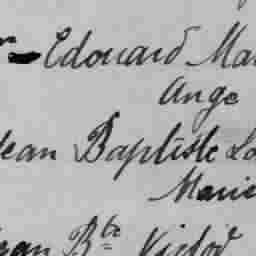 Edouard Ma
Ange
Jean Baptiste Lo
Marie
Jean Bte Victor